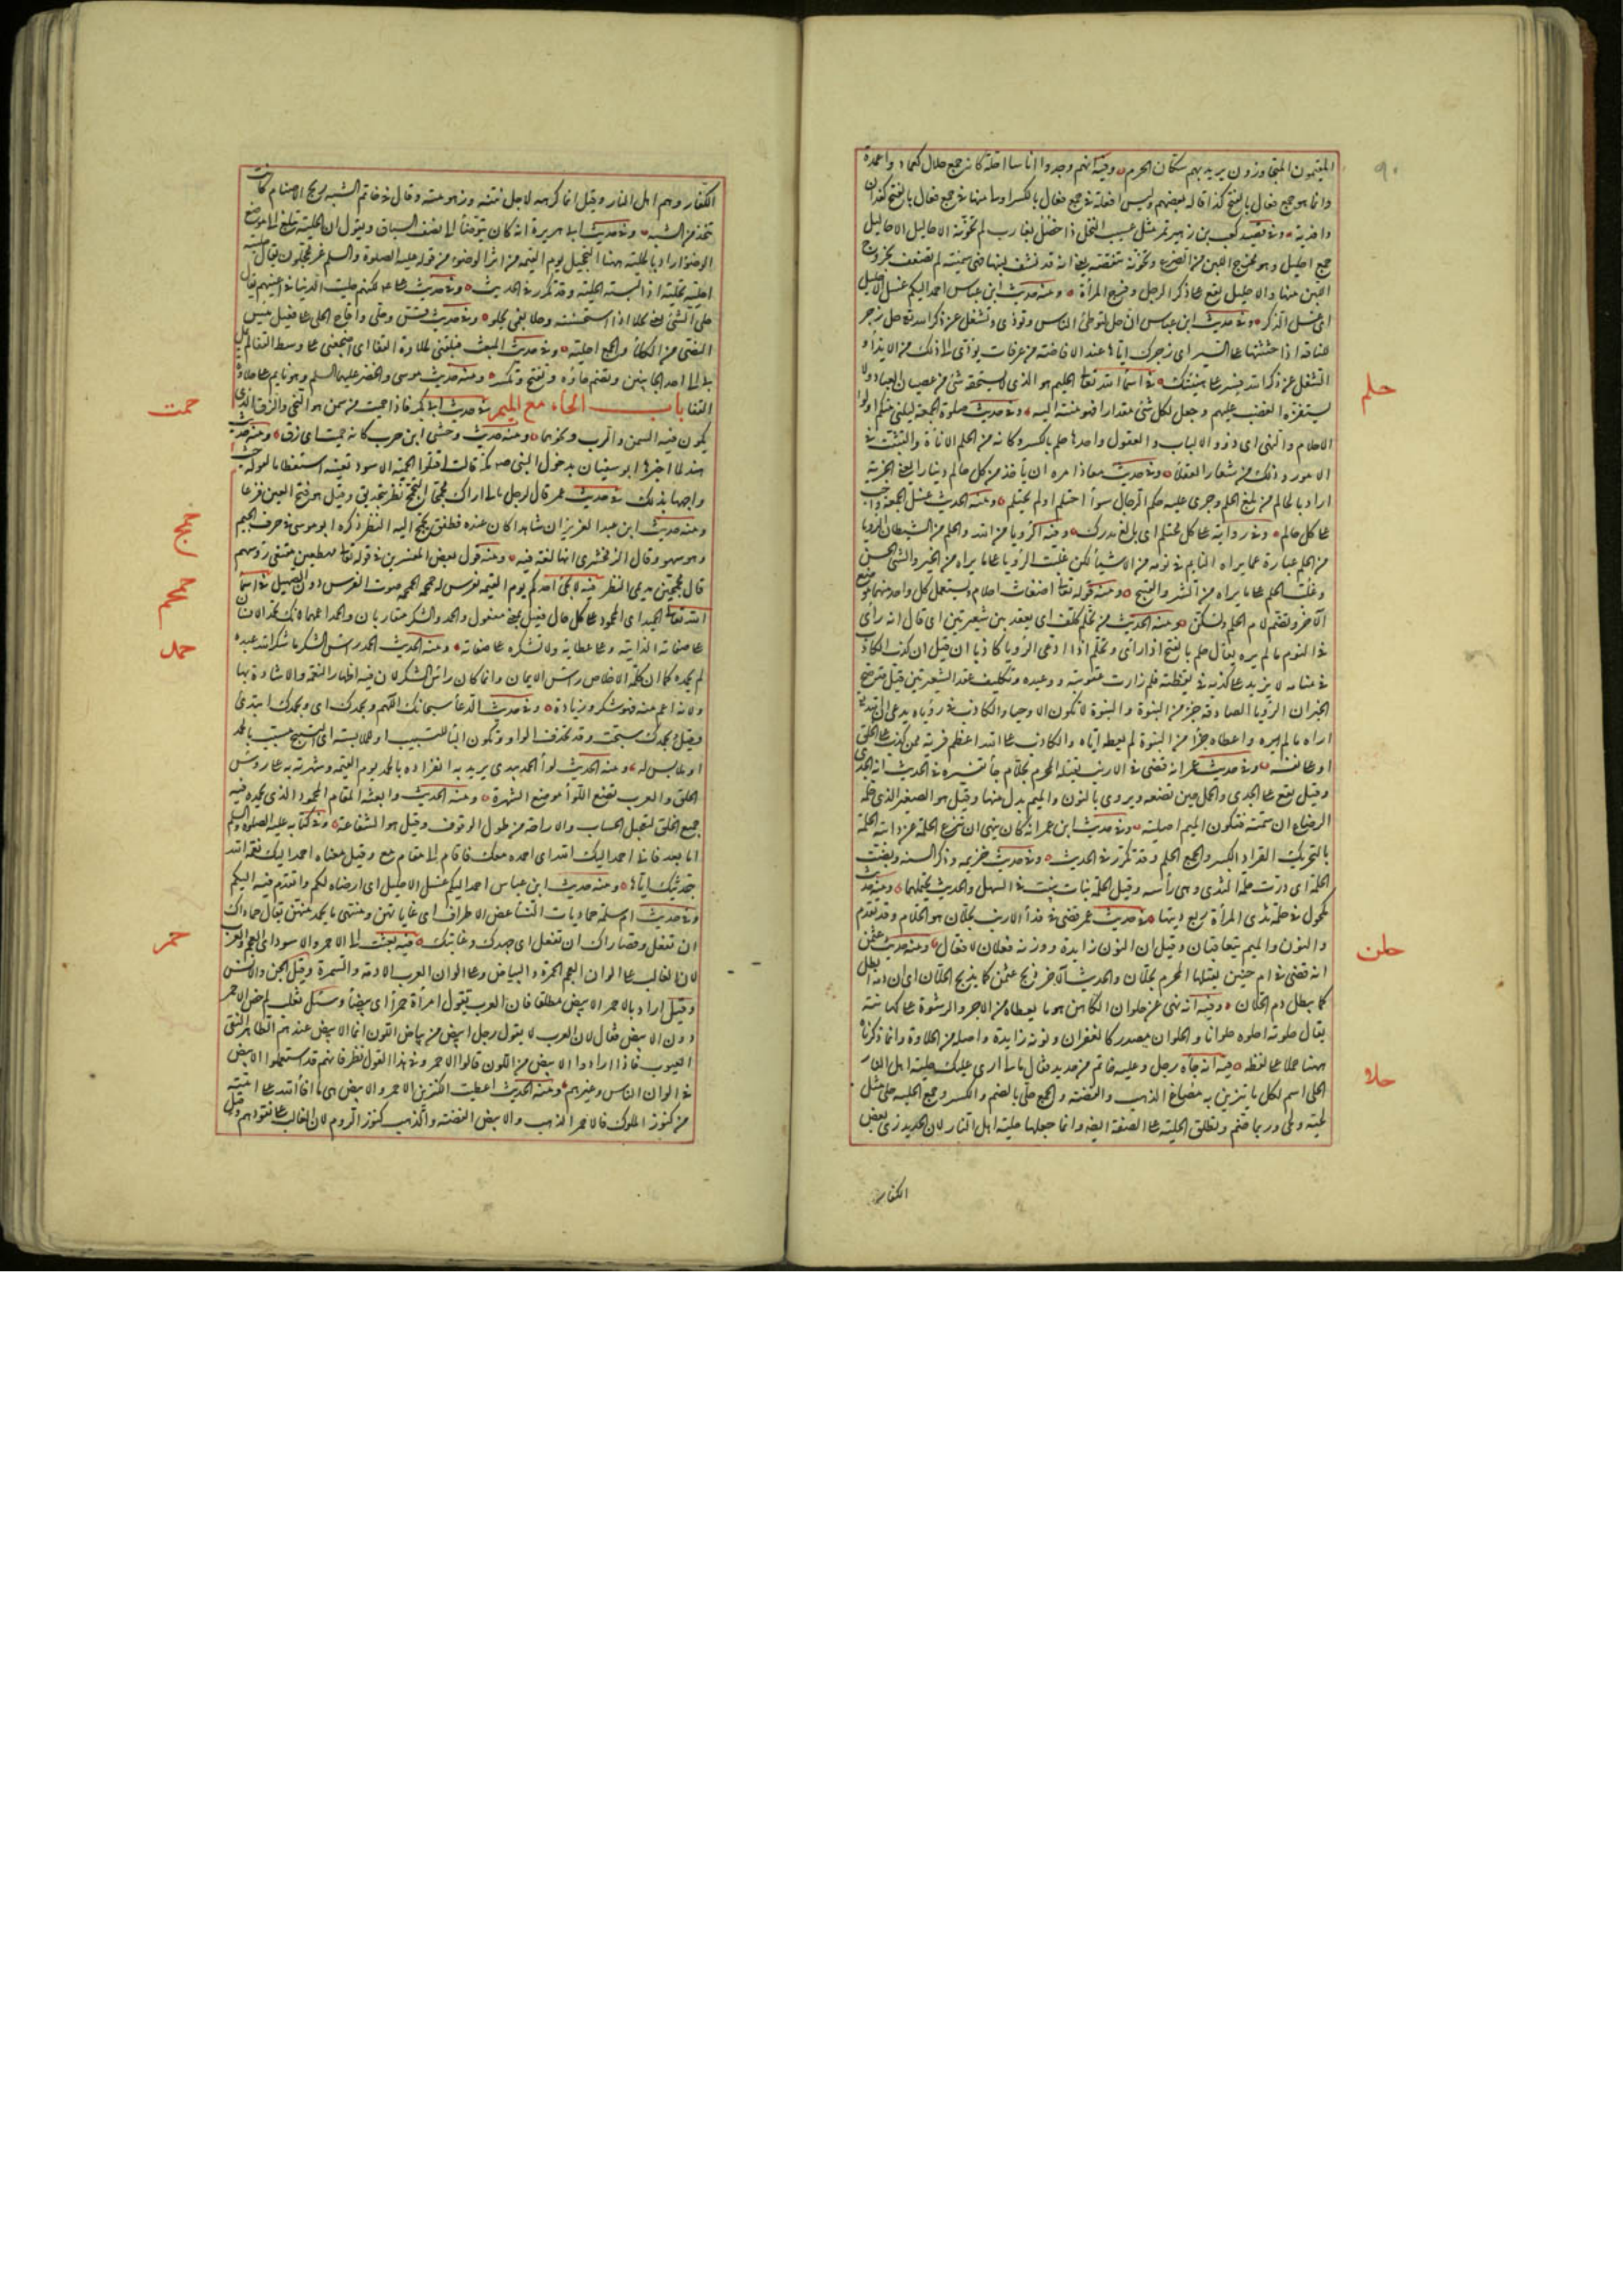 المقيمون المتجاوزون يريد بهم سكان الحرم وفيه انهم وجدوا اناسا احلة كانه جمع حلال كعماد واعمدة
وانما هو جمع فعال بالفتح كذا قاله بعضهم وليس افعلة في جمع فعال بالكسر اولى منها في جمع فعال بالفتح كفدان
وافدنة وفي قصيد كعب بن زهير تمر مثل عسيب النخل ذا خصل بغارب لم تخونه الاحاليل الاحاليل
جمع احليل وهو مخرج اللبن من الضرع وتخونه تنقصه يعني انه قد نشف لبنها فهي سمينة لم تضعف بخروج
اللبن منها والاحليل يقع على ذكر الرجل وفرج المرأة ومنه حديث ابن عباس احمد اليكم غسل الاحليل
اي غسل الذكر وفي حديث ابن عباس ان حل لتوطئ الناس وتوذي وتشغل عن ذكر الله تعالى حل زجر
للناقة اذا حثثتها على السير اي زجرك اياها عند الافاضة من عرفات يؤدي الى ذلك من الايذاء و
الشغل عن ذكر الله فسر على هينتك في اسماء الله تعالى الحليم هو الذي لا يستخفه شئ من عصيان العباد ولا
يستفزه الغضب عليهم وجعل لكل شئ مقدارا فهو منته اليه وفي حديث صلوة الجمعة ليلني منكم اولوا
الاحلام والنهى اي ذوو الالباب والعقول واحدها حلم بالكسر وكانه من الحلم الاناة والتثبت في
الامور وذلك من شعار العقلاء وفي حديث معاذ امره ان يأخذ من كل حالم دينارا يعني الجزية
اراد بالحالم من بلغ الحلم وجرى عليه حكم الرجال سواء احتلم او لم يحتلم ومنه الحديث غسل الجمعة واجب
على كل حالم وفي رواية على كل محتلم اي بالغ مدرك وفيه الرؤيا من الله والحلم من الشيطان الرؤيا
من الحلم عبارة عما يراه النايم في نومه من الاشياء لكن غلبت الرؤيا على ما يراه من الخير والشئ الحسن
وغلب الحلم على ما يراه من الشر والقبيح ومنه قوله تعالى اضغاث احلام ويستعمل كل واحد منهما موضع
الآخر وتضم لام الحلم وتسكن ومنه الحديث من تحلم كلف اي يعقد بين شعيرتين اي قال انه رأى
في النوم ما لم يره يقال حلم بالفتح اذا رأى وتحلم اذا ادعى الرؤيا كاذبا ان قيل ان كذب الكاذب
في منامه لا يزيد على كذبه في يقظته فلم زادت عقوبته ووعيده وتكليف عقد الشعيرتين قيل قد صح
الخبر ان الرؤيا الصادقة جزء من النبوة والنبوة لا تكون الا وحيا والكاذب في رؤياه يدعي ان الله تعالى
اراه ما لم يره واعطاه جزءا من النبوة لم يعطه اياه والكاذب على الله اعظم فرية ممن كذب على الخلق
او على نفسه وفي حديث عمر انه قضى في الارنب يقتله المحرم بحلام جاء تفسيره في الحديث انه الجدي
وقيل يقع على الجدي والحمل حين تضعه ويروى بالنون والميم بدل منها وقيل هو الصغير الذي حلمه
الرضاع ان سمنه فتكون الميم اصلية وفي حديث ابن عمر انه كان ينهى ان تنزع الحلمة عن دابته الحلمة
بالتحريك القراد الكبير والجمع الحلم وقد تكرر في الحديث وفي حديث خزيمه وذكر السنة وبضت
الحلمة اي درت حلمة الثدي وهي رأسه وقيل الحلمة نبات ينبت في السهل والحديث يحتملهما ومنه حديث
مكحول في حلمة ثدي المرأة ربع ديتها في حديث عمر قضى في فداء الارنب بحلان هو الحلام وقد تقدم
والنون والميم يتعاقبان وقيل ان النون زايدة ووزنه فعلان لا فعال ومنه حديث عثمن
انه قضى في ام حبين يقتلها المحرم بحلان والحديث الآخر ذبح عثمن كما يذبح الحلان اي ان دمه ابطل
كما يبطل دم الحلان وفيه انه نهى عن حلوان الكاهن هو ما يعطاه من الاجر والرشوة على كهانته
يقال حلوته احلوه حلوانا والحلوان مصدر كالغفران ونونه زايدة واصله من الحلاوة وانما ذكرناه
ههنا حملا على لفظه فيه انه جاءه رجل وعليه خاتم من حديد فقال ما لي ارى عليك حلية اهل النار
الحلي اسم لكل ما يتزين به من مصاغ الذهب والفضة والجمع حلي بالضم والكسر وجمع الحلية حلى مثل
لحية ولحى وربما ضم وتطلق الحلية على الصفة ايضا وانما جعلها حلية اهل النار لان الحديد زي بعض
الكفار
٩٠
حلم
حلن
حلا
الكفار وهم اهل النار وقيل انما كرهه لاجل نتنه وزهومته وقال في خاتم الشبه ريح الاصنام لان كانت
تتخذ من الشبه وفي حديث ابي هريرة انه كان يتوضأ الى نصف الساق ويقول ان الحلية تبلغ الى مواضع
الوضوء اراد بالحلية ههنا التحجيل يوم القيمة من اثر الوضوء من قوله عليه الصلوة والسلم غر محجلون يقال حليته
احليه تحلية اذا البسته الحلية وقد تكرر في الحديث وفي حديث علي لكنهم حليت الدنيا في اعينهم يقال
حلي الشئ بعيني يحلى اذا استحسنته وحلا بفمي يحلو وفي حديث قس وحلي واقاح الحلي على فعيل يبيس
النصي من الكلأ والجمع احلية وفي حديث المبعث فسلقني لحلاوة القفا اي اضجعني على وسط القفا لم يمل
بي الى احد الجانبين وتضم حاؤه وتفتح وتكسر ومنه حديث موسى والخضر عليهما السلم وهو نايم على حلاوة
القفا باب الحاء مع الميم في حديث ابي بكر فاذا حميت من سمن هو النحي والزق الذي
يكون فيه السمن والرب ونحوهما ومنه حديث وحشي ابن حرب كانه حميت اي زق ومنه حديث
هند لما اخبرها ابو سفيان بدخول النبي صلم مكة قالت اقتلوا الحميت الاسود تعنيه استعظاما لقوله حيث
واجهها بذلك في حديث عمر قال لرجل ما لي اراك محمجا التحميج نظر بتحديق وقيل هو فتح العين فزعا
ومنه حديث ابن عبد العزيز ان شاهدا كان عنده فطفق يحمج اليه النظر ذكره ابو موسى في حرف الجيم
وهو سهو وقال الزمخشري انها لغة فيه ومنه قول بعض المفسرين في قوله تعالى مهطعين مقنعي رؤسهم
قال محمجين مديمي النظر فيه لا يجئ احدكم يوم القيمة بفرس له حمحمة الحمحمة صوت الفرس دون الصهيل في اسماء
الله تعالى الحميد اي المحمود على كل حال فعيل بمعنى مفعول والحمد والشكر متقاربان والحمد اعمهما لانك تحمد الانسان
على صفاته الذاتية وعلى عطائه ولا تشكره على صفاته ومنه الحديث الحمد رأس الشكر ما شكر الله عبد
لم يحمده كما ان كلمة الاخلاص رأس الايمان وانما كان رأس الشكر لان فيه اظهار النعمة والاشادة بها
ولانه اعم منه فهو شكر وزيادة وفي حديث الدعاء سبحانك اللهم وبحمدك اي وبحمدك ابتدئ
وقيل بحمدك سبحت وقد تحذف الواو وتكون الباء للتسبيب او للملابسة اي التسبيح مسبب بالحمد
او ملابس له ومنه الحديث لواء الحمد بيدي يريد به انفراده بالحمد يوم القيمة وشهرته به على رؤس
الخلق والعرب تضع اللواء موضع الشهرة ومنه الحديث وابعثه المقام المحمود الذي يحمده فيه
جميع الخلق لتعجيل الحساب والاراحة من طول الوقوف وقيل هو الشفاعة وفي كتابه عليه الصلوة والسلم
اما بعد فاني احمد اليك الله اي احمده معك فاقام الى مقام مع وقيل معناه احمد اليك نعمة الله
بتحديثك اياها ومنه حديث ابن عباس احمد اليكم غسل الاحليل اي ارضاه لكم واتقدم فيه اليكم
وفي حديث ام سلمة حماديات النساء غض الاطراف اي غاياتهن ومنتهى ما يحمد منهن يقال حماداك
ان تفعل وقصاراك ان تفعل اي جهدك وغايتك فيه بعثت الى الاحمر والاسود اي العجم والعرب
لان الغالب على الوان العجم الحمرة والبياض وعلى الوان العرب الادمة والسمرة وقيل الجن والانس
وقيل اراد بالاحمر الابيض مطلقا فان العرب تقول امرأة حمراء اي بيضاء وسئل ثعلب لم خص الاحمر
دون الابيض فقال لان العرب لا يقول رجل ابيض من بياض اللون انما الابيض عندهم الطاهر النقي
العيوب فاذا ارادوا الابيض من اللون قالوا الاحمر وفي هذا القول نظر فانهم قد استعملوا الابيض
في الوان الناس وغيرهم ومنه الحديث اعطيت الكنزين الاحمر والابيض هي ما افاء الله على امته
من كنوز الملوك فالاحمر الذهب والابيض الفضة والذهب كنوز الروم لان الغالب على نقودهم وقيل
حمت
حمج
حمحم
حمد
حمر